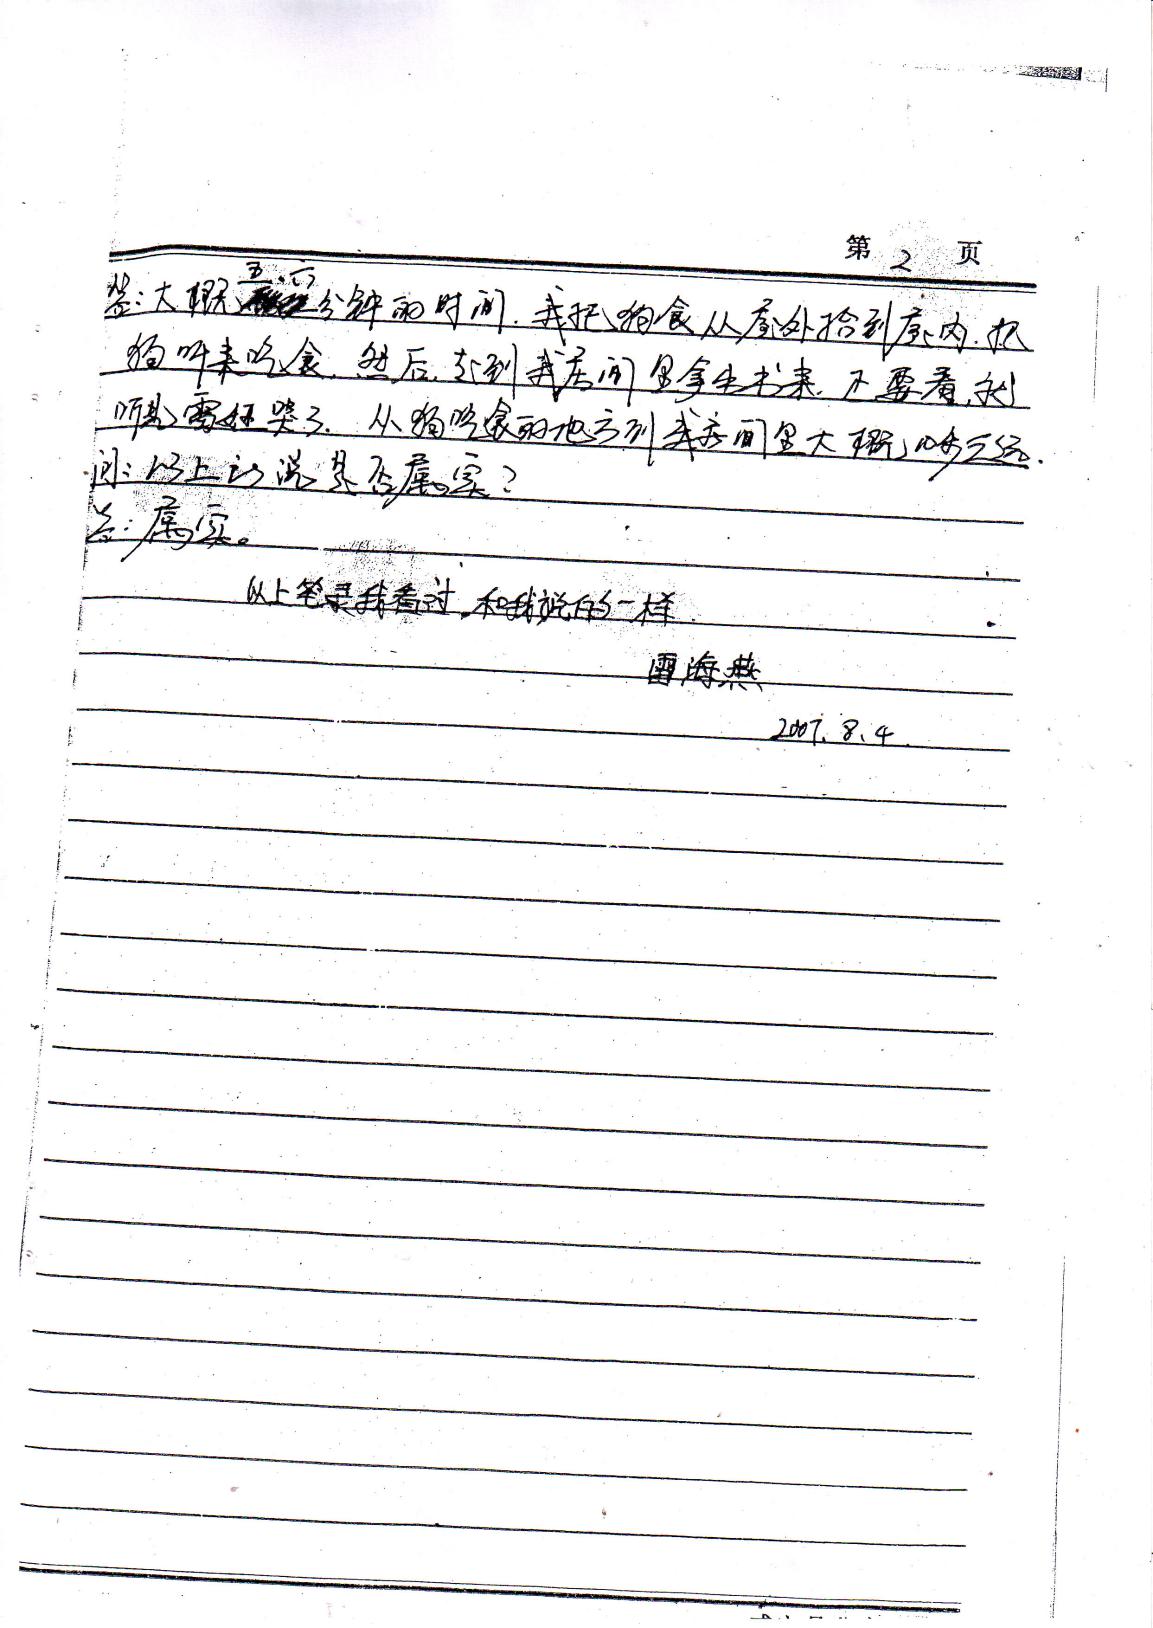 第 2 页
答：大概五、六分钟的时间．我把狗食从屋外拾到屋内．把
狗呼来吃食．然后．走到我房间里拿出书来．不要看．就
听见雷妞哭了．从狗吃食的地方到我房间里大概
问：以上所说是否属实？
答：属实。
以上笔录我看过．和我说的一样．
雷海燕
2007.8.4